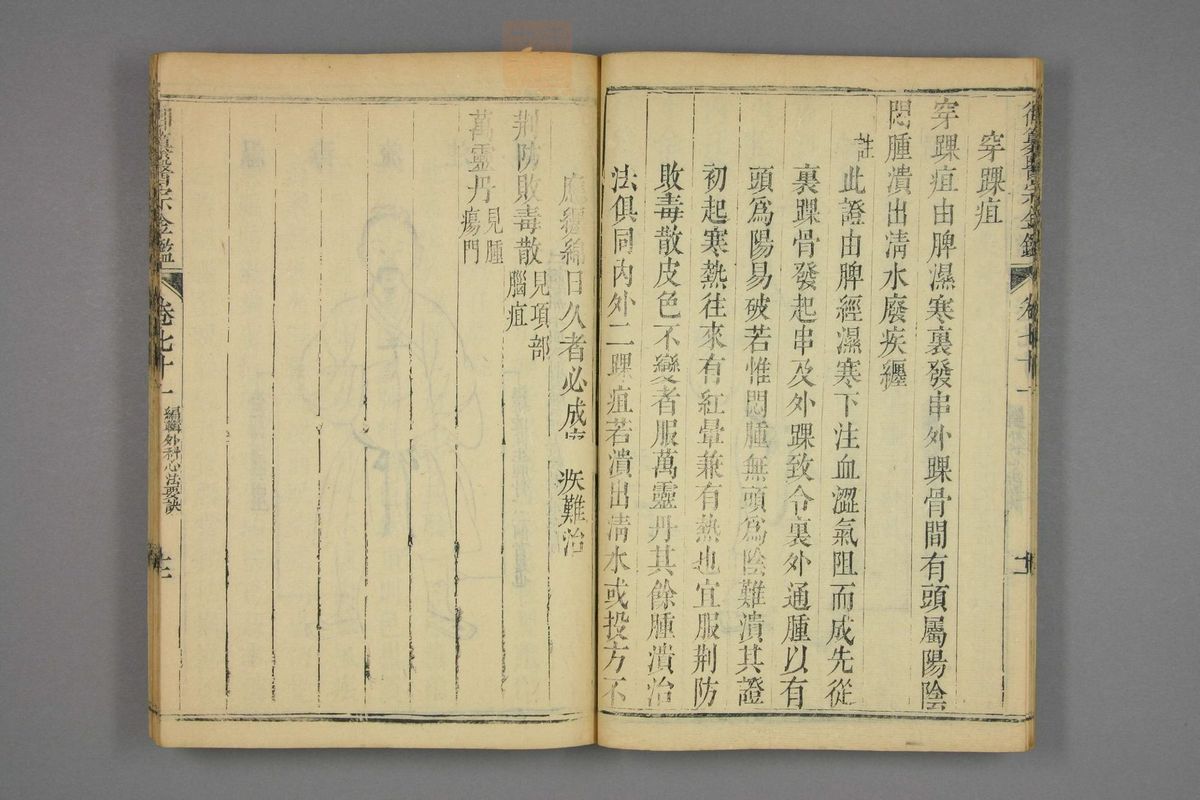 御纂醫宗金鑑 卷七十一
穿踝疽
穿踝疽由脾濕寒裏發串外踝骨間有頭屬陽陰
悶腫潰出清水廢疾纏
註 此證由脾經濕寒下注血澀氣阻而成先從
裏踝骨發起串及外踝致令裏外通腫以有
頭為陽易破若惟悶腫無頭為陰難潰其證
初起寒熱往來有紅暈兼有熱也宜服荆防
敗毒散皮色不變者服萬靈丹其餘腫潰治
法俱同內外二踝疽若潰出清水或投方不
應纏綿日久者必成 疾難治
荆防敗毒散 見項部腦疽
萬靈丹 見腫瘍門
纂醫宗金鑑 卷七十一 編輯外科心法要訣